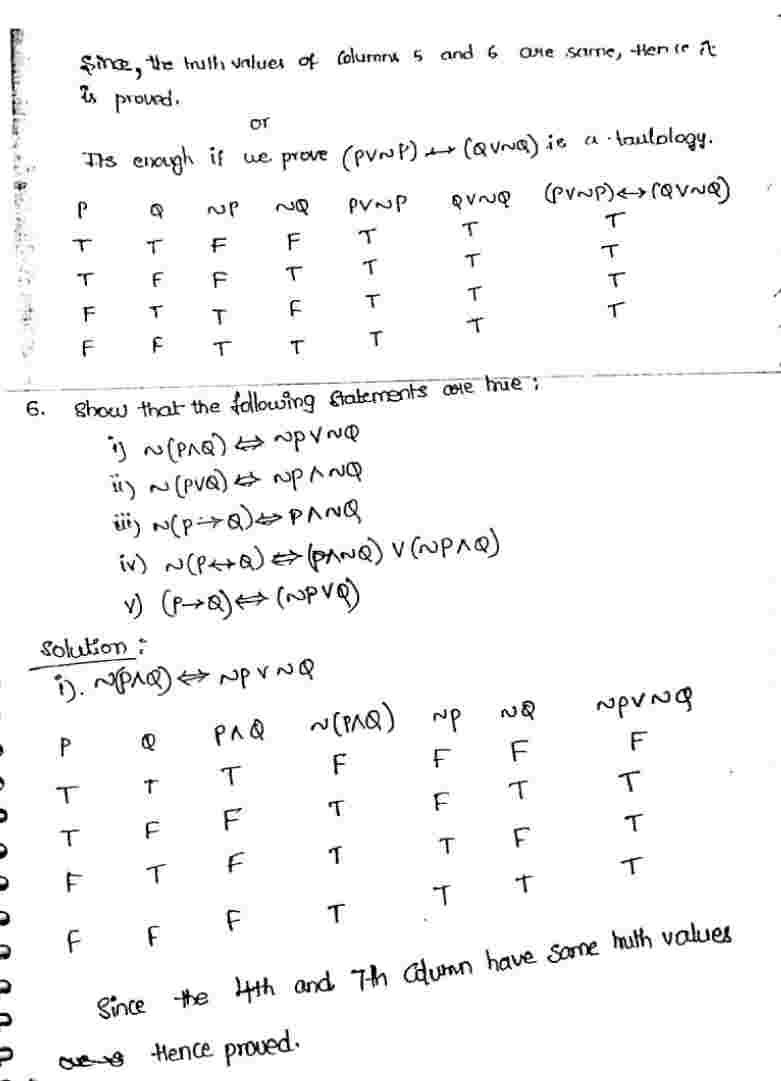 Since, the truth values of Columns 5 and 6 are same, Hence it
is proved.
or
Its enough if we prove (PV~P) ↔ (QV~Q) is a tautology.
P Q ~P ~Q PV~P QV~Q (PV~P)↔(QV~Q)
T T F F T T T
T F F T T T T
F T T F T T T
F F T T T T T
6. Show that the following Statements are true :
i) ~(P∧Q) ⇔ ~PV~Q
ii) ~(PVQ) ⇔ ~P∧~Q
iii) ~(P→Q) ⇔ P∧~Q
iv) ~(P↔Q) ⇔ (P∧~Q) V (~P∧Q)
v) (P→Q) ⇔ (~PVQ)
Solution :
i). ~(P∧Q) ⇔ ~PV~Q
P Q P∧Q ~(P∧Q) ~P ~Q ~PV~Q
T T T F F F F
T F F T F T T
F T F T T F T
F F F T T T T
Since the 4th and 7th Column have same truth values
Hence proved.